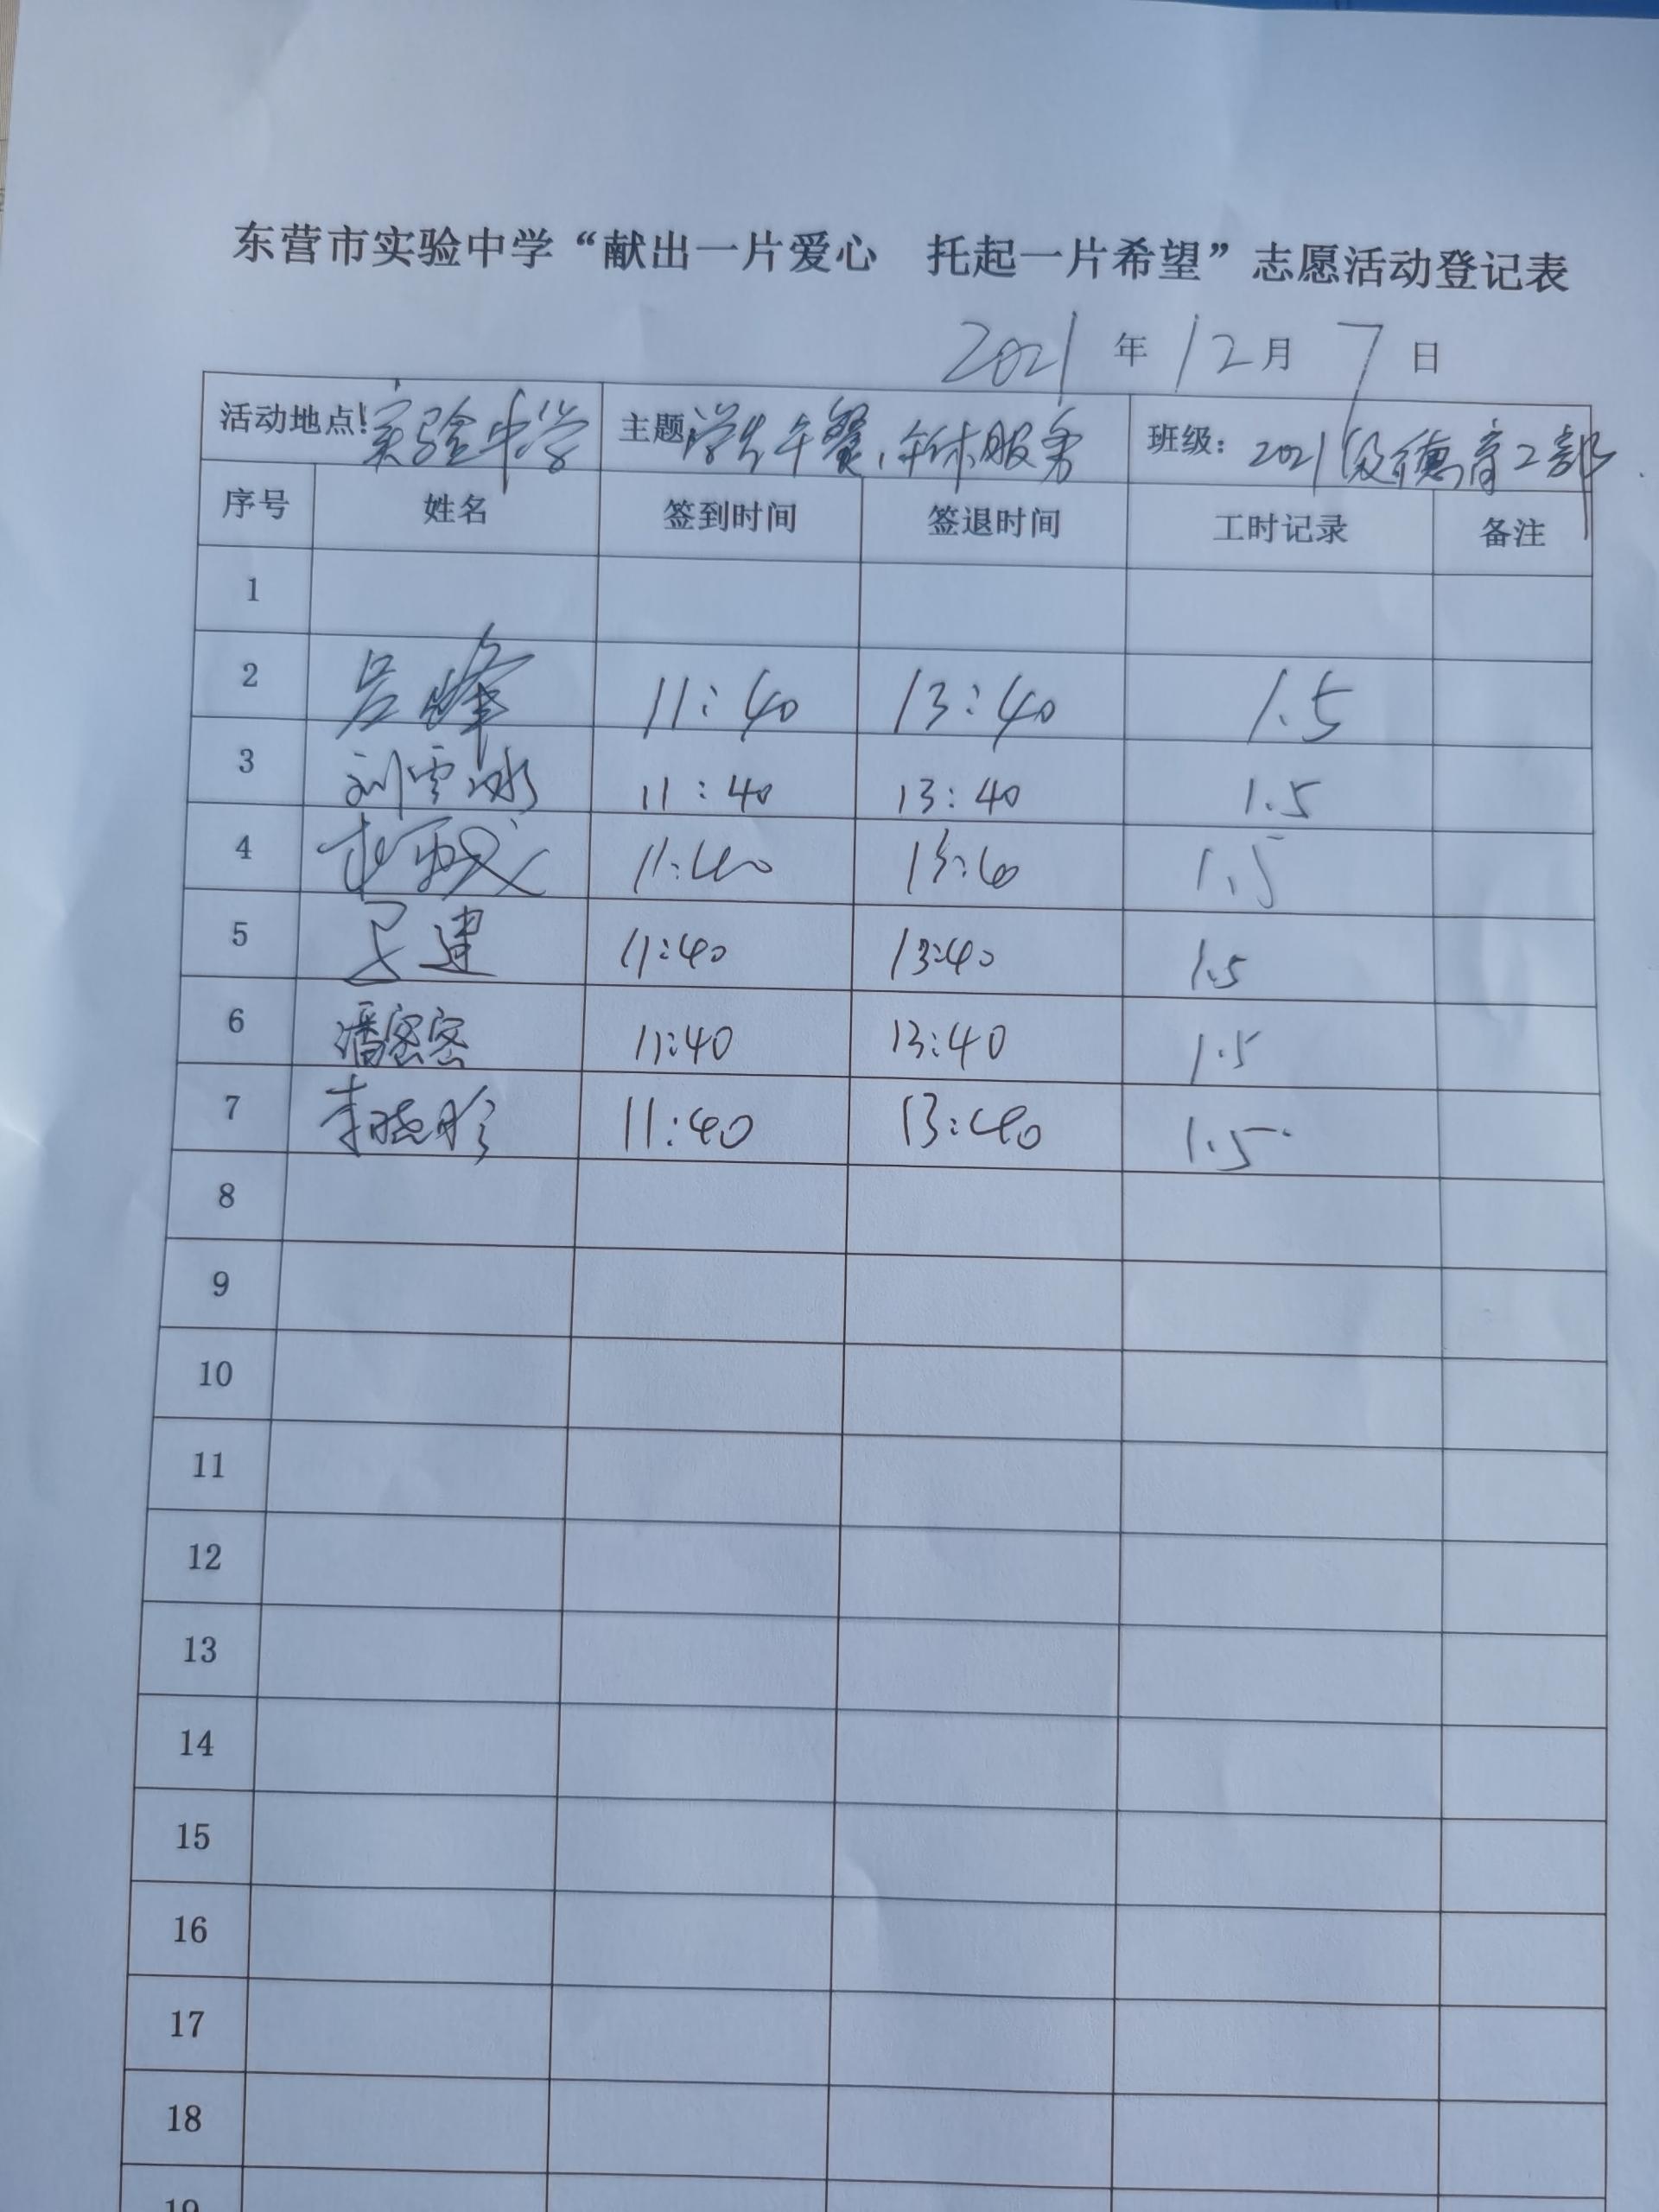 东营市实验中学“献出一片爱心 托起一片希望”志愿活动登记表
2021年12月7日
活动地点:实验中学 主题:学生午餐、午休服务 班级:2021级德育2部
序号 姓名 签到时间 签退时间 工时记录 备注
1
2 吕峰 11:40 13:40 1.5
3 刘雪冰 11:40 13:40 1.5
4 11:40 13:40 1.5
5 建 11:40 13:40 1.5
6 潘密密 11:40 13:40 1.5
7 李晓彤 11:40 13:40 1.5
8
9
10
11
12
13
14
15
16
17
18
19